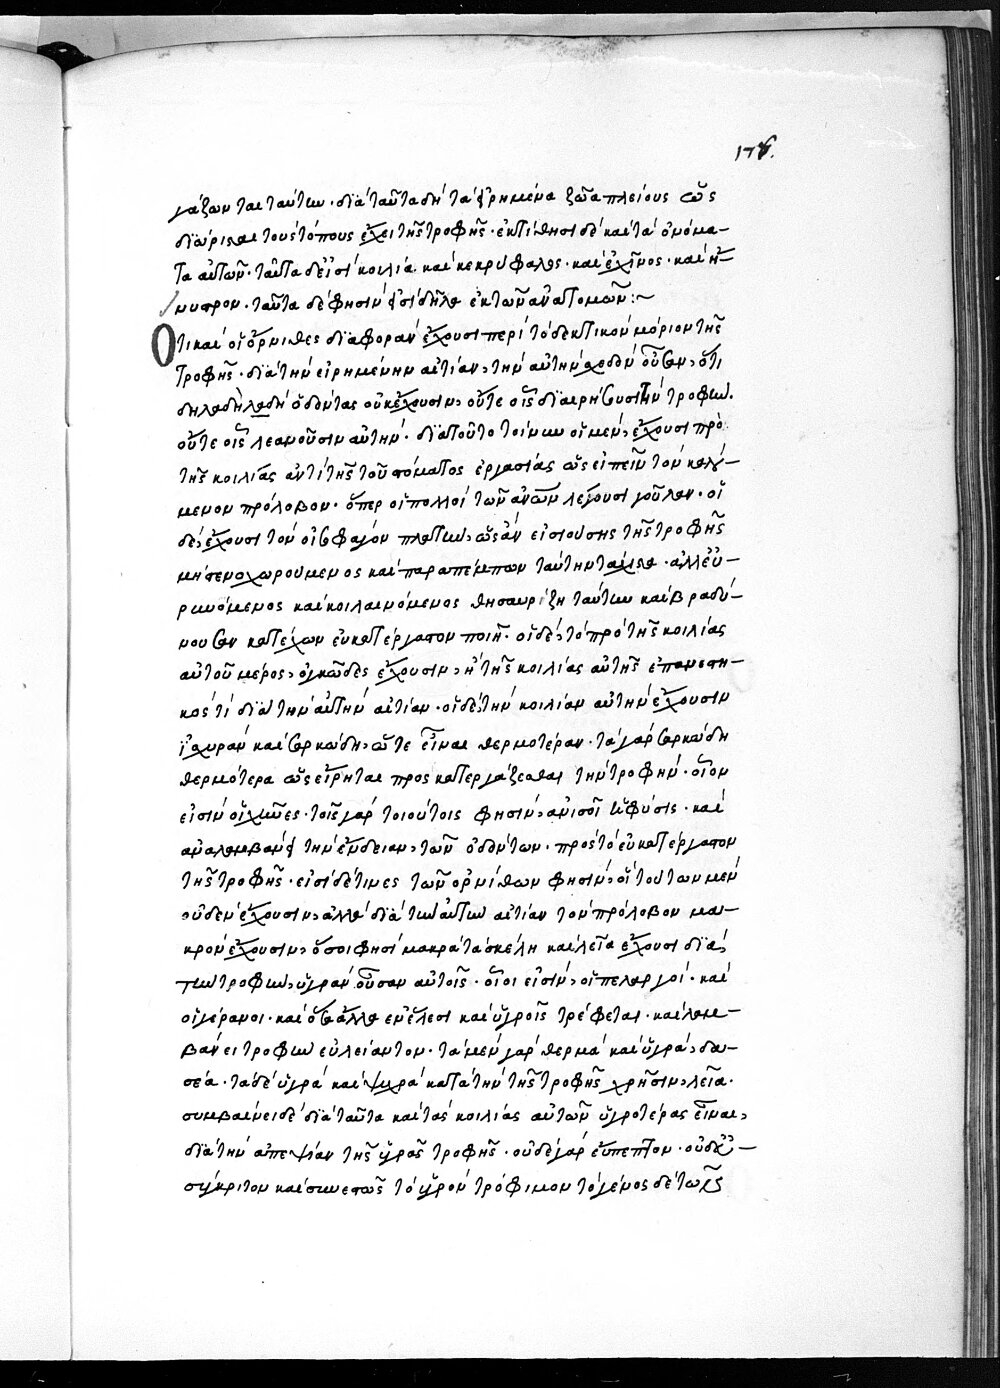 γάζωνται ταύτην· διὰ ταῦτα δὴ τὰ εἰρημένα ζῶα πλείους ὡς
διώρισται τοὺς τόπους ἔχει τῆς τροφῆς· ἐκτίθησι δὲ καὶ τὰ ὀνόμα-
τα αὐτῶν· ταῦτα δέ εἰσι κοιλία καὶ κεκρύφαλος· καὶ ἐχῖνος· καὶ ἤ-
νυστρον· ταῦτα δέ φησιν εἰσὶ δῆλα ἐκ τῶν ἀνατομῶν:~
Ὅτι καὶ οἱ ὄρνιθες διαφορὰν ἔχουσι περὶ τὸ δεκτικὸν μόριον τῆς
τροφῆς· διὰ τὴν εἰρημένην αἰτίαν, τὴν αὐτὴν οὖσαν, ὅτι
δηλαδὴ ὀδόντας οὐκ ἔχουσιν, οὔτε οἷς διαιρήσουσι τὴν τροφήν·
οὔτε οἷς λεανοῦσιν αὐτήν· διὰ τοῦτο τοίνυν οἱ μὲν, ἔχουσι πρὸ
τῆς κοιλίας ἀντὶ τῆς τοῦ στόματος ἐργασίας ὡς εἰπεῖν τὸν καλού-
μενον πρόλοβον· ὅπερ οἱ πολλοὶ τῶν ἀνῶν λέγουσι γοῦλαν· οἱ
δὲ, ἔχουσι τὸν οἰσοφάγον πλατὺν, ὡς ἂν εἰσιούσης τῆς τροφῆς
μὴ στενοχωρούμενος καὶ παραπέμπων ταύτην ταχίστα· ἀλλ' εὐ-
ρυνόμενος καὶ κοιλαινόμενος θησαυρίζῃ ταύτην καὶ βραδύ-
νουσαν κατέχων εὐκατέργαστον ποιῇ· οἱ δὲ, τὸ πρὸ τῆς κοιλίας
αὐτοῦ μέρος, ὀγκῶδες ἔχουσιν, ἢ τῆς κοιλίας αὐτῆς ἐπανεστη-
κός τι διὰ τὴν αὐτὴν αἰτίαν· οἱ δὲ, τὴν κοιλίαν αὐτὴν ἔχουσιν
ἰσχυρὰν καὶ σαρκώδη, ὥστε εἶναι θερμοτέραν· τὰ γὰρ σαρκώδη
θερμότερα ὡς εἴρηται πρὸς κατεργάζεσθαι τὴν τροφήν· οἷον
εἰσὶν οἱ χῆνες· τοῖς γὰρ τοιούτοις φησὶν, ἀνισοῖ ἡ φύσις· καὶ
ἀναλαμβάνει τὴν ἔνδειαν, τῶν ὀδόντων· πρὸς τὸ εὐκατέργαστον
τῆς τροφῆς· εἰσὶ δέ τινες τῶν ὀρνίθων φησὶν, οἳ τούτων μὲν
οὐδὲν ἔχουσιν, ἀλλὰ διὰ τὴν αὐτὴν αἰτίαν τὸν πρόλοβον μα-
κρὸν ἔχουσιν, ὅσοι φησὶ μακρὰ τὰ σκέλη καὶ λεῖα ἔχουσι διὰ
τὴν τροφὴν, ὑγρὰν οὖσαν αὐτοῖς· οἷοι εἰσὶν, οἱ πελαργοί· καὶ
οἱ γέρανοι· καὶ ὅσα ἄλλα ἐν ἕλεσι καὶ ὑγροῖς τρέφεται· καὶ λαμ-
βάνει τροφὴν εὐλείαντον· τὰ μὲν γὰρ θερμὰ καὶ ὑγρὰ, δα-
σέα· τὰ δὲ ὑγρὰ καὶ ψυχρὰ κατὰ τὴν τῆς τροφῆς χρῆσιν, λεῖα·
συμβαίνει δὲ διὰ ταῦτα καὶ τὰς κοιλίας αὐτῶν ὑγροτέρας εἶναι,
διὰ τὴν ἀπεψίαν τῆς ὑγρᾶς τροφῆς· οὐδὲ γὰρ εὔπεπτον· οὐδὲ εὐ-
σύγκριτον καὶ συνετῶς τὸ ὑγρὸν τρόφιμον τὸ γένος δὲ τῶν